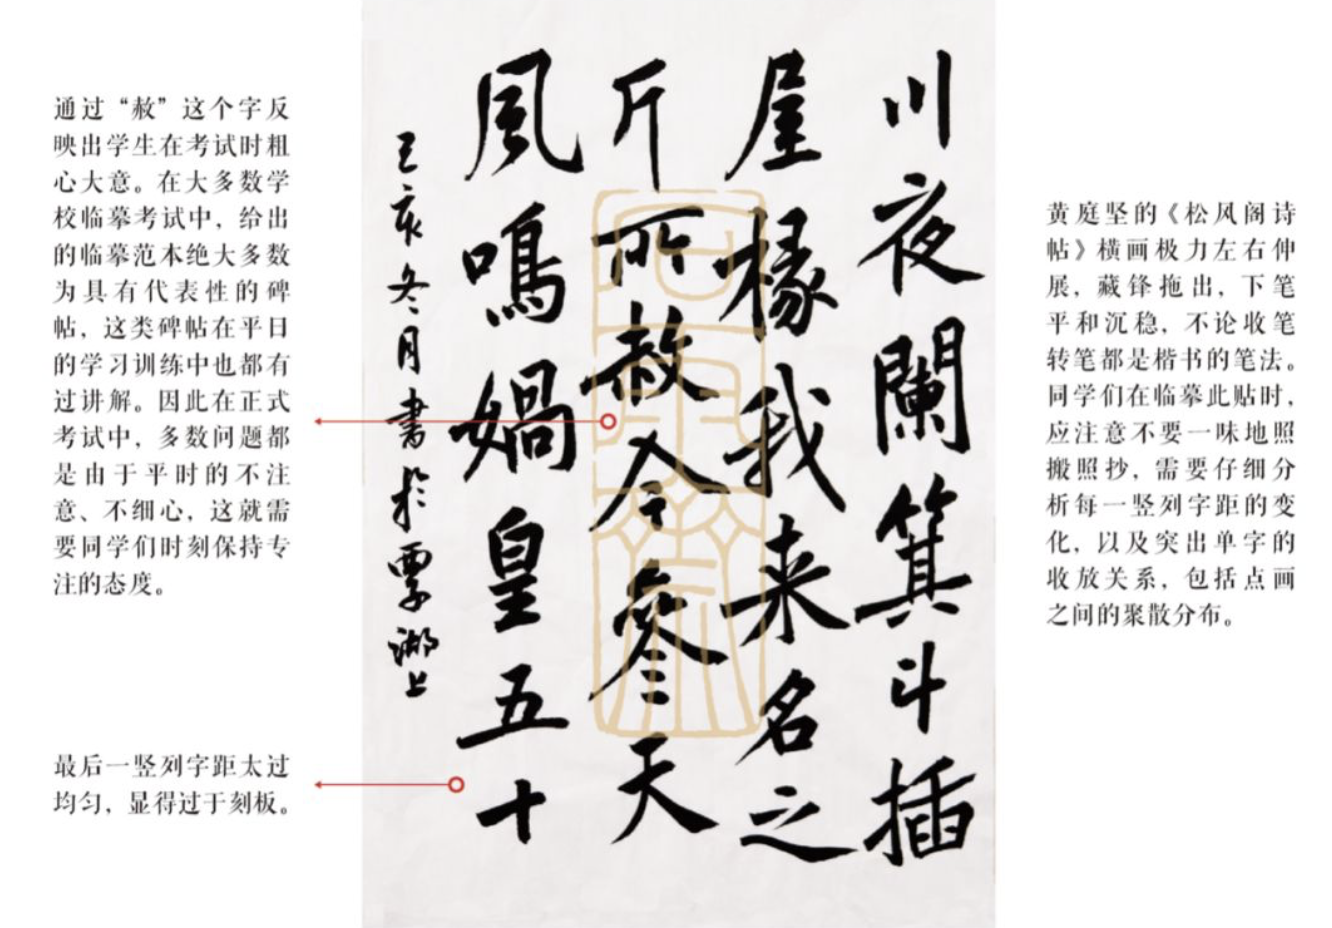 通过“赦”这个字反
映出学生在考试时粗
心大意。在大多数学
校临摹考试中，给出
的临摹范本绝大多数
为具有代表性的碑
帖，这类碑帖在平日
的学习训练中也都有
过讲解。因此在正式
考试中，多数问题都
是由于平时的不注
意、不细心，这就需
要同学们时刻保持专
注的态度。
最后一竖列字距太过
均匀，显得过于刻板。
川夜闌箕斗插
屋椽我来名之
斤所赦今參天
風鳴媧皇五十
己亥冬月書於湖上
黄庭坚的《松风阁诗
帖》横画极力左右伸
展，藏锋拖出，下笔
平和沉稳，不论收笔
转笔都是楷书的笔法。
同学们在临摹此贴时，
应注意不要一味地照
搬照抄，需要仔细分
析每一竖列字距的变
化，以及突出单字的
收放关系，包括点画
之间的聚散分布。